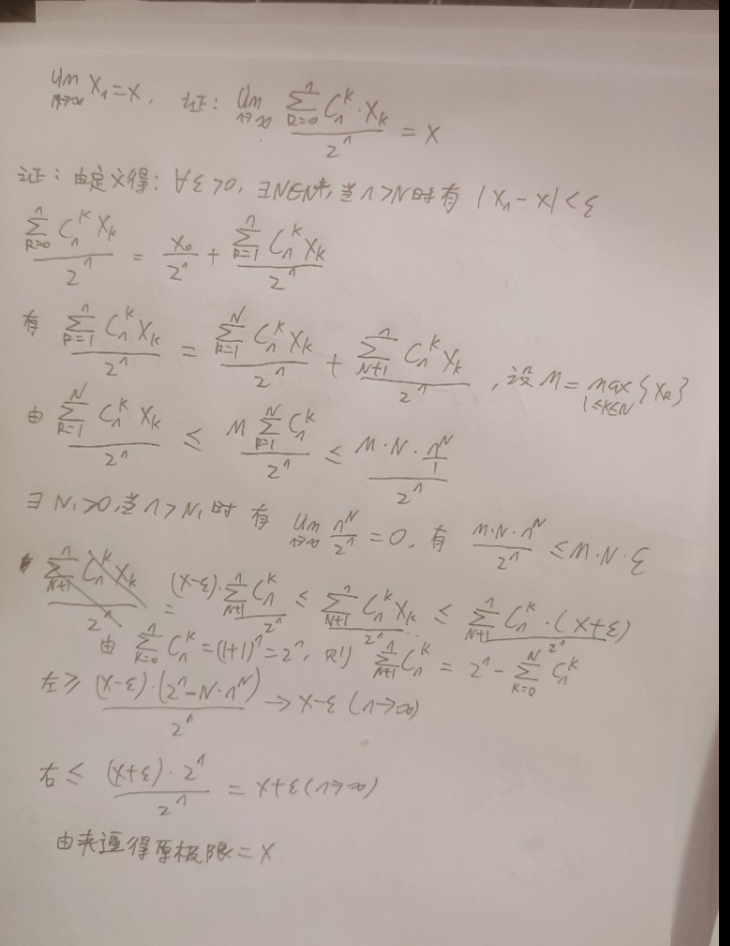 lim_{n→∞} x_n = x. 证: lim_{n→∞} \frac{\sum_{k=0}^{n} C_n^k · x_k}{2^n} = x
证: 由定义得: ∀ε>0, ∃N∈N*, 当n>N时有 |x_n - x|<ε
\frac{\sum_{k=0}^{n} C_n^k x_k}{2^n} = \frac{x_0}{2^n} + \frac{\sum_{k=1}^{n} C_n^k x_k}{2^n}
有 \frac{\sum_{k=1}^{n} C_n^k x_k}{2^n} = \frac{\sum_{k=1}^{N} C_n^k x_k}{2^n} + \frac{\sum_{N+1}^{n} C_n^k x_k}{2^n}, 设 M = max_{1≤k≤N}{x_k}
由 \frac{\sum_{k=1}^{N} C_n^k x_k}{2^n} ≤ \frac{M\sum_{k=1}^{N} C_n^k}{2^n} ≤ \frac{M·N·\frac{n^N}{1}}{2^n}
∃N_1>0, 当n>N_1时 有 lim_{n→∞} \frac{n^N}{2^n} = 0, 有 \frac{M·N·n^N}{2^n} ≤ M·N·ε
\frac{\sum_{N+1}^{n} C_n^k x_k}{2^n} = \frac{(x-ε)·\sum_{N+1}^{n} C_n^k}{2^n} ≤ \frac{\sum_{N+1}^{n} C_n^k x_k}{2^n} ≤ \frac{\sum_{N+1}^{n} C_n^k·(x+ε)}{2^n}
由 \sum_{k=0}^{n} C_n^k = (1+1)^n = 2^n, 则 \sum_{N+1}^{n} C_n^k = 2^n - \sum_{k=0}^{N} C_n^k
左≥ \frac{(x-ε)·(2^n-N·n^N)}{2^n} → x-ε (n→∞)
右≤ \frac{(x+ε)·2^n}{2^n} = x+ε (n→∞)
由夹逼得原极限=x